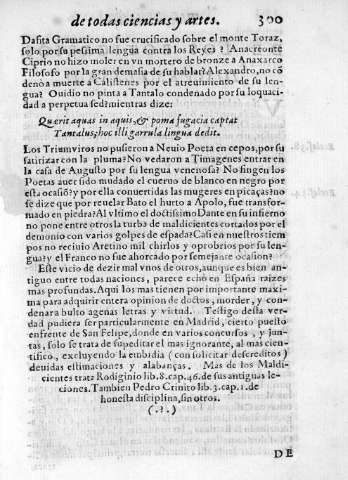 de todas ciencias y artes. 300
Dafita Gramatico no fue crucificado sobre el monte Toraz,
solo por su pesima lengua contra los Reyes? Anacreonte
Ciprio no hizo moler en vn mortero de bronze a Anaxarco
Filosofo por la gran demasia de su hablar? Alexandro, no cō
denò a muerte a Calistenes por el atreuimiento de su len-
gua? Ouidio no pinta a Tantalo condenado por su loquaci-
dad a perpetua sed? mientras dize:
Quærit aquas in aquis, & poma fugacia captat
Tantalus, hoc illi garrula lingua dedit.
Los Triumviros no pusieron a Neuio Poeta en cepos, por su
satirizar con la pluma? No vedaron a Timagenes entrar en
la casa de Augusto por su lengua venenosa? No fingen los
Poetas auer sido mudado el cuerbo de blanco en negro por
esta ocasiō? y por ella conuertidas las mugeres en picaças? no
se dize que por reuelar Bato el hurto a Apolo, fue transfor-
mado en piedra? Al vltimo el doctissimo Dante en su infierno
no pone entre otros la turba de maldicientes cortados por el
demonio con varios golpes de espada? Casi en nuestros tiem
pos no reciuio Aretino mil chirlos y oprobrios por su len-
gua? y el Franco no fue ahorcado por semejante ocasion?
Este vicio de dezir mal vnos de otros, aunque es bien an-
tiguo entre todas naciones, parece echò en España raizes
mas profundas. Aqui los mas tienen por importante maxi-
ma para adquirir entera opinion de doctos, morder, y con-
denara bulto agenas letras y virtud. Testigo desta ver-
dad pudiera ser particularmente en Madrid, cierto puesto
enfrente de San Felipe, donde en varios concursos, y jun-
tas, solo se trata de supeditar el mas ignorante, al mas cien-
tifico, excluyendo la embidia (con solicitar descreditos)
deuidas estimaciones y alabanças. Mas de los Maldi-
cientes trata Rodiginio lib. 8. cap. 46. de sus antiguas le-
ciones. Tambien Pedro Crinito lib. 3. cap. 1. de
honesta disciplina, sin otros.
(.?.)
DE